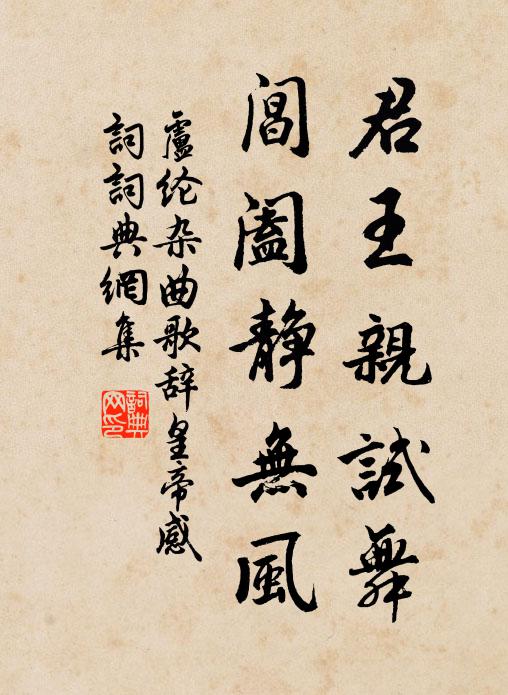 君王親試舞
閶闔静無風
盧纶杂曲歌辞皇帝感
詞詞典網集
詞典網印